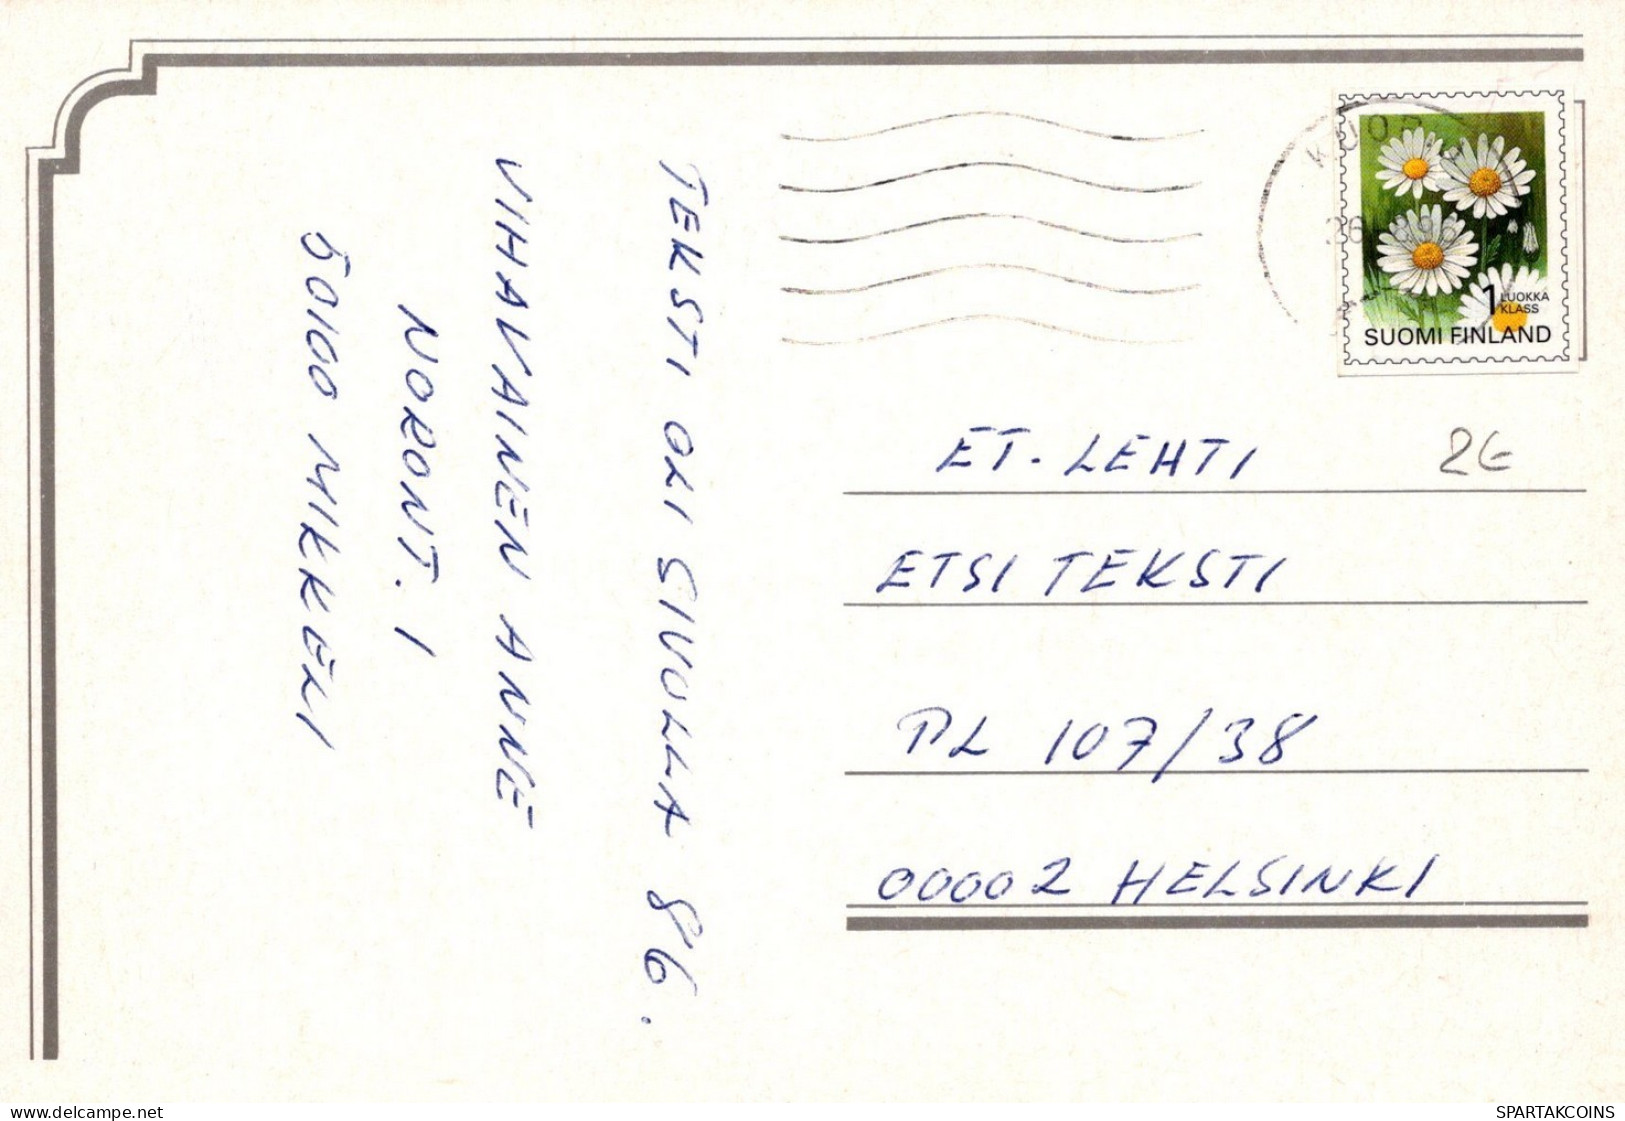 TEKSTI OLI SIVULLA 86.
VIHAVAINEN ANNE
NORONT. 1
50100 MIKKELI
1 LUOKKA
KLASS
SUOMI FINLAND
ET-LEHTI
2€
ETSI TEKSTI
PL 107/38
00002 HELSINKI
delcampe.net
SPARTAKCOINS